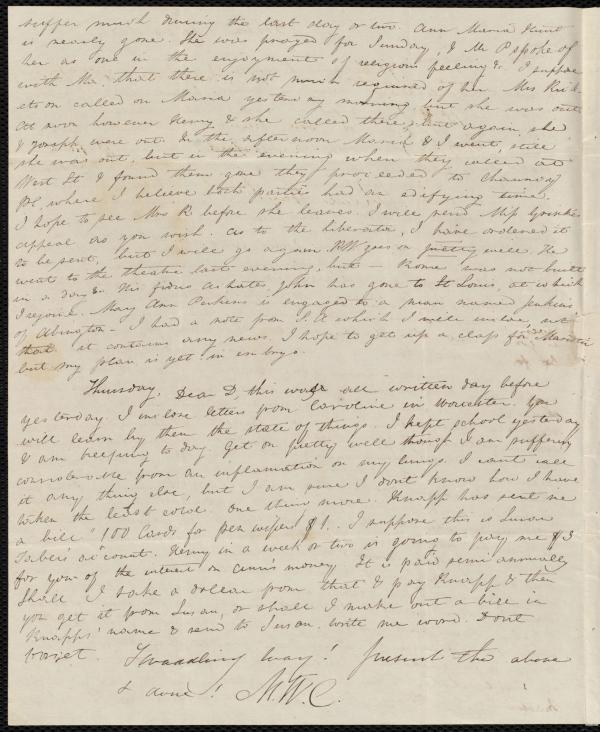 suffer much during the last day or two. Ann Maria
is nearly gone. She was prayed for Sunday, & Mr P spoke of
her as one in the enjoyment of religious feeling &. I suppose
with Ma. that there is not much required of her. Mrs
called on Maria yesterday morning but she was out
At noon however Henry & she called there again, she
& Joseph were out. In the afternoon Maria & I went, still
she was out, but in the evening when they called at
West St & found them gone they proceeded to Chauncy
Pl, where I believe both parties had an edifying time.
I hope to see Mrs R before she leaves. I will send Miss Grimkes
appeal as you wish. As to the Liberator, I have ordered it
to be sent, but I will go again. RW goes on pretty well. He
went to the theatre last evening, but — Rome was not built
in a day &. His John has gone to St Louis, at which
I rejoice. Mary Ann Perkins is engaged to a man named Jenkins
of Abington. I had a note from which I will inclose, not
that it contains any news. I hope to get up a class for Miss Martin
but my plan is yet in embryo.
Thursday. Dear D, this was all written day before
yesterday. I inclose letters from Caroline in Worcester. You
will learn by them the state of things. I kept school yesterday
& am keeping to day. Get on pretty well though I am suffering
considerable from an inflamation on my lungs. I cant call
it any thing else, but I am sure I dont know how I have
taken the least cold. One thing more. Knapp has sent me
a bill "100 Cards for pen wipers $1". I suppose this is Susan
Tabers account. Henry in a week or two is going to pay me $3
for you of the interest on Ann's money. It is paid semi annually
Shall I take a dollar from that & pay Knapp & then
you get it from Susan, or shall I make out a bill in
Knapps' name & send to Susan. Write me word. Dont
forget. Twaddling way! Forgive the above
& done! M. W. C.